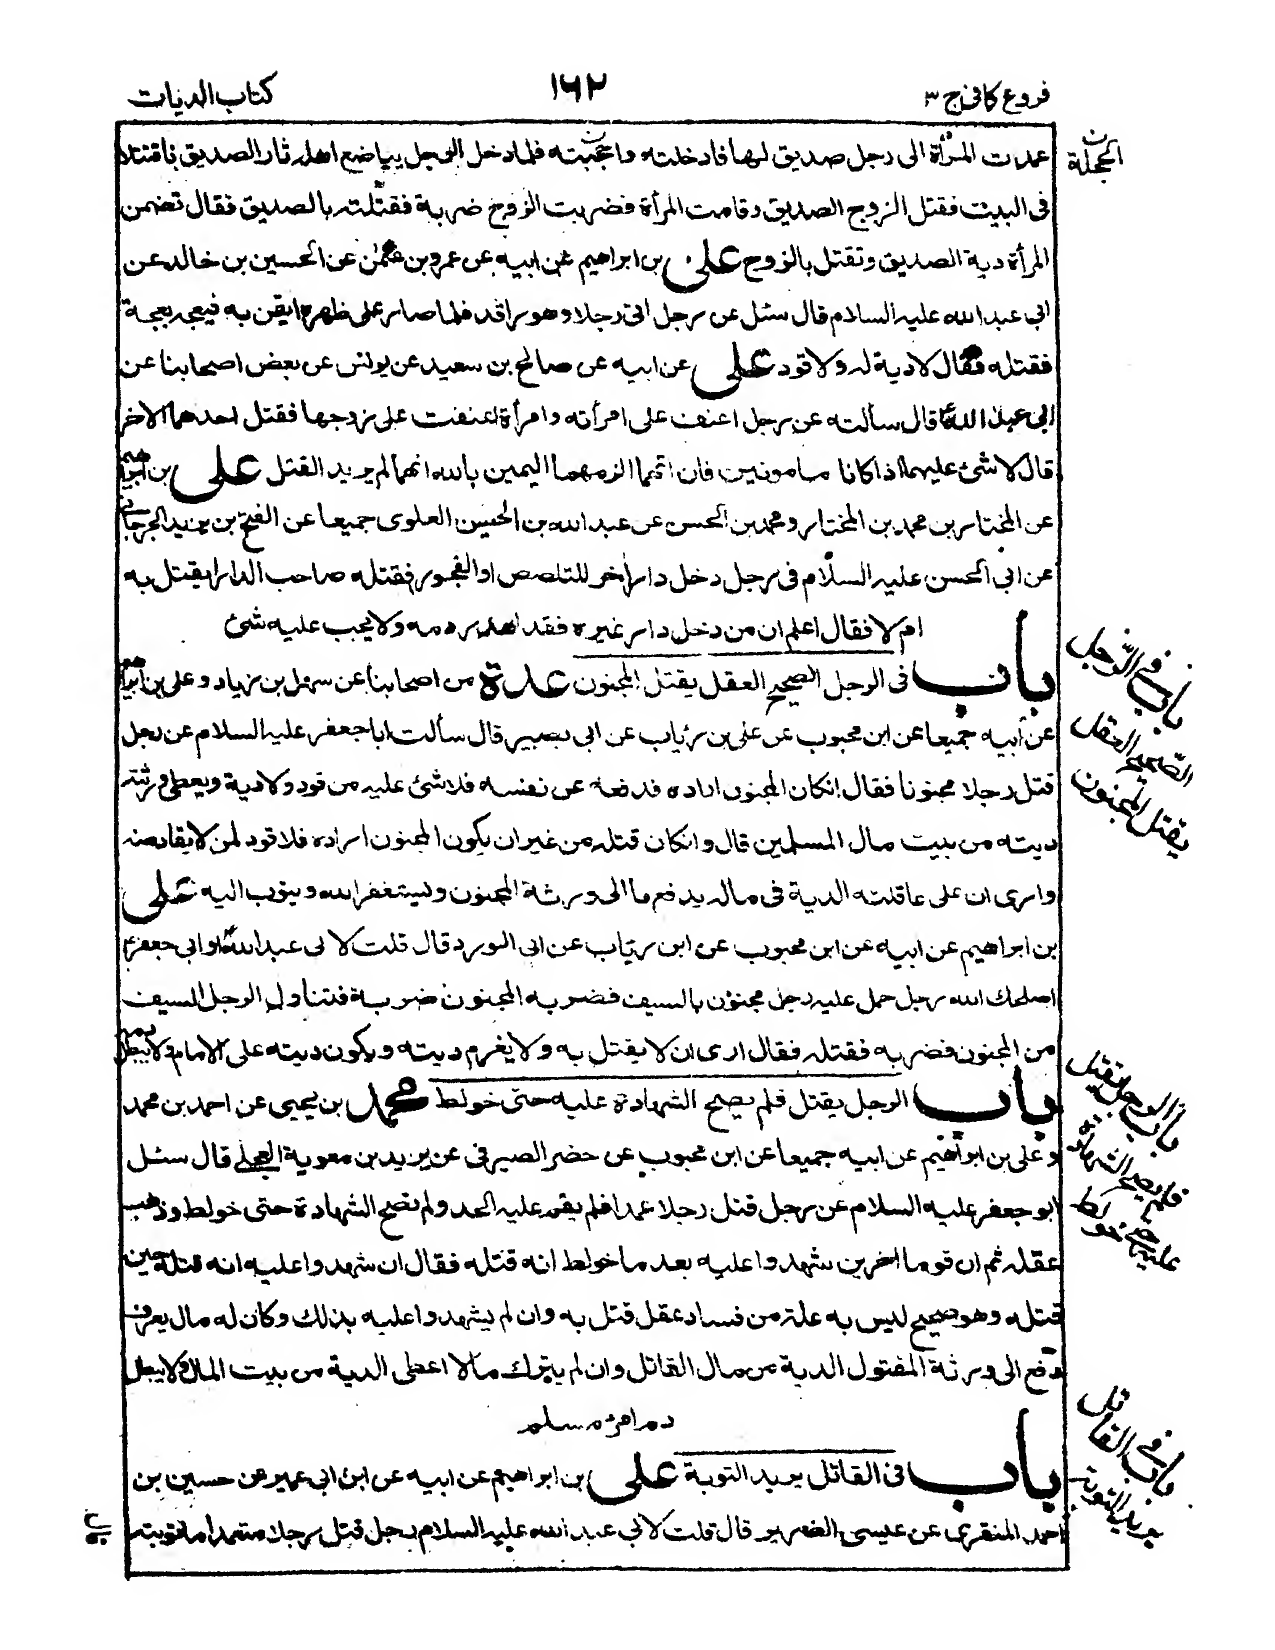 فروع كافي ج ٣
١٦٢
كتاب الديات
الحجلة ن
عمدت المرأة الى رجل صديق لها فادخلته واحجبته فلما دخل الرجل يباضع اهله ثار الصديق فاقتتلا
فى البيت فقتل الزوج الصديق وقامت المرأة فضربت الزوج ضربة فقتلته بالصديق فقال تضمن
المرأة دية الصديق وتقتل بالزوج على بن ابراهيم عن ابيه عن عمرو بن عثمن عن الحسين بن خالد عن
ابى عبد الله عليه السلام قال سئل عن رجل اتى رجلا وهو راقد فلما صار على ظهره ايقن به فبعجه بعجة
فقتله فقال لا دية له ولا قود على عن ابيه عن صالح بن سعيد عن يونس عن بعض اصحابنا عن
ابى عبد الله ع قال سألته عن رجل اعنف على امرأته وامرأة اعنفت على زوجها فقتل احدهما الاخر
قال لا شئ عليهما اذا كانا مامونين فان اتهما الزمهما اليمين بالله انهما لم يريد القتل على بن ابراهيم
عن المختار بن محمد بن المختار ومحمد بن الحسن عن عبد الله بن الحسن العلوى جميعا عن الفتح بن يزيد الجرجانى
عن ابى الحسن عليه السلام فى رجل دخل دار اخر للتلصص او الفجور فقتله صاحب الدار ايقتل به
ام لا فقال اعلم ان من دخل دار غيره فقد اهدر دمه ولا يجب عليه شئ
باب فى الرجل الصحيح العقل يقتل المجنون عدة من اصحابنا عن سهل بن زياد وعلى بن ابراهيم
عن أبيه جميعا عن ابن محبوب عن على بن رئاب عن ابى بصير قال سألت ابا جعفر عليه السلام عن رجل
قتل رجلا مجنونا فقال انكان المجنون اراده فدفعه عن نفسه فلا شئ عليه من قود ولا دية ويعطى ورثته
ديته من بيت مال المسلمين قال وانكان قتله من غير ان يكون المجنون اراده فلا قود لمن لا يقاد منه
وارى ان على عاقلته الدية فى ماله يدفعها الى ورثة المجنون وليستغفر الله ويتوب اليه على
بن ابراهيم عن ابيه عن ابن محبوب عن ابن رئاب عن ابى الورد قال قلت لابى عبد الله ع او ابى جعفر ع
اصلحك الله رجل حمل عليه رجل مجنون بالسيف فضربه المجنون ضربة فتناول الرجل السيف
من المجنون فضربه فقتله فقال ارى ان لا يقتل به ولا يغرم ديته ويكون ديته على الامام ولا يبطل دمه
باب الرجل يقتل فلم يصح الشهادة عليه حتى خولط محمد بن يحيى عن احمد بن محمد
وعلى بن ابراهيم عن ابيه جميعا عن ابن محبوب عن خضر الصيرفى عن بريد بن معوية العجلى قال سئل
ابو جعفر عليه السلام عن رجل قتل رجلا عمدا فلم يقم عليه الحد ولم تصح الشهادة حتى خولط وذهب
عقله ثم ان قوما اخرين شهدوا عليه بعد ما خولط انه قتله فقال ان شهدوا عليه انه قتله حين
قتله وهو صحيح ليس به علة من فساد عقل قتل به وان لم يشهدوا عليه بذلك وكان له مال يعرف
دفع الى ورثة المقتول الدية من مال القاتل وان لم يترك مالا اعطى الدية من بيت المال ولا يبطل
دم امرئ مسلم
باب فى القاتل يريد التوبة على بن ابراهيم عن ابيه عن ابن ابى عمير عن حسين بن
احمد المنقرى عن عيسى الضرير قال قلت لابى عبد الله عليه السلام رجل قتل رجلا متعمدا ما توبته
باب فى الرجل
الصحيح العقل
يقتل المجنون
باب الرجل يقتل
فلم يصح الشهادة
عليه حتى خولط
باب فى القاتل
يريد التوبة